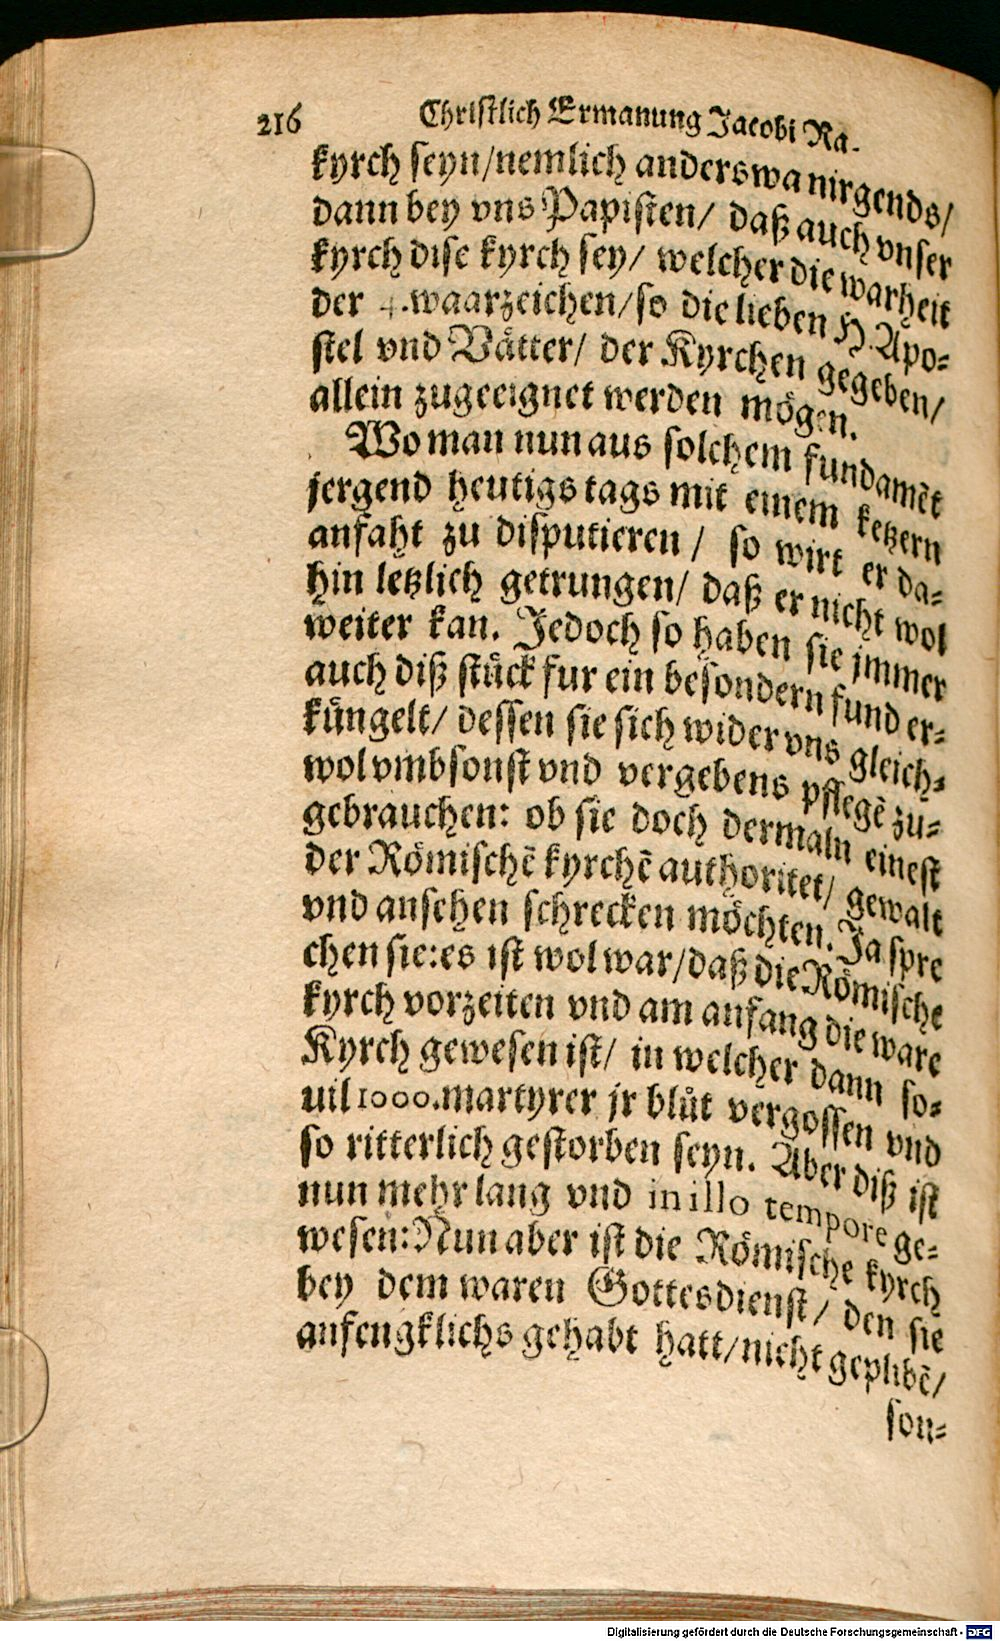 216 Christlich Ermanung Jacobi Ra-
kyrch seyn/nemlich anderswa nirgends/
dann bey vns Papisten/ daß auch vnser
kyrch dise kyrch sey/ welcher die warheit
der 4. waarzeichen/so die lieben H. Apo-
stel vnd Vätter/ der Kyrchen gegeben/
allein zugeeignet werden mögen.
Wo man nun aus solchem fundamēt
jergend heutigs tags mit einem ketzern
anfaht zu disputieren / so wirt er da-
hin letzlich getrungen/ daß er nicht wol
weiter kan. Jedoch so haben sie jmmer
auch diß stůck fur ein besondern fund er-
kůngelt/ dessen sie sich wider vns gleich-
wol vmbsonst vnd vergebens pflegē zu-
gebrauchen: ob sie doch dermaln einest
der Römischē kyrchē authoritet/ gewalt
vnd ansehen schrecken möchten. Ja spre
chen sie: es ist wol war/daß die Römische
kyrch vorzeiten vnd am anfang die ware
Kyrch gewesen ist/ in welcher dann so-
uil 1000. martyrer jr blůt vergossen vnd
so ritterlich gestorben seyn. Aber diß ist
nun mehr lang vnd in illo tempore ge-
wesen: Nun aber ist die Römische kyrch
bey dem waren Gottesdienst/ den sie
anfengklichs gehabt hatt/nicht geplibē/
son-
Digitalisierung gefördert durch die Deutsche Forschungsgemeinschaft - DFG